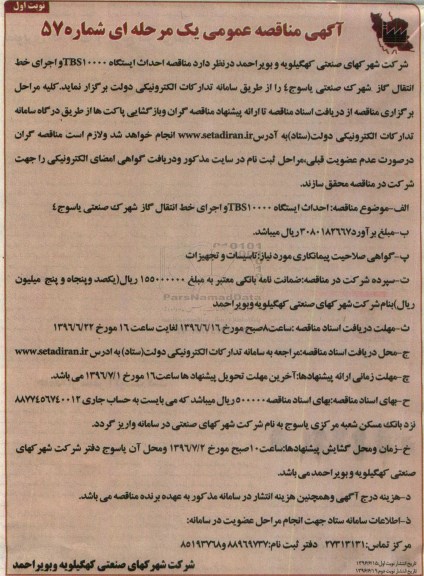 نوبت اول
آگهی مناقصه عمومی یک مرحله ای شماره ۵۷
شرکت شهرکهای صنعتی کهگیلویه و بویراحمد درنظر دارد مناقصه احداث ایستگاه TBS۱۰۰۰۰ و اجرای خط
انتقال گاز شهرک صنعتی یاسوج٤ را از طریق سامانه تدارکات الکترونیکی دولت برگزار نماید.کلیه مراحل
برگزاری مناقصه از دریافت اسناد مناقصه تا ارائه پیشنهاد مناقصه گران وبازگشایی پاکت ها از طریق درگاه سامانه
تدارکات الکترونیکی دولت(ستاد)به آدرس www.setadiran.ir انجام خواهد شد ولازم است مناقصه گران
درصورت عدم عضویت قبلی،مراحل ثبت نام در سایت مذکور ودریافت گواهی امضای الکترونیکی را جهت
شرکت در مناقصه محقق سازند.
الف-موضوع مناقصه: احداث ایستگاه TBS۱۰۰۰۰ و اجرای خط انتقال گاز شهرک صنعتی یاسوج٤
ب-مبلغ برآورد ۳۰۸۰۱۸۲۶۶۷ ریال میباشد.
پ-گواهی صلاحیت پیمانکاری مورد نیاز:تاسیسات و تجهیزات
ت-سپرده شرکت در مناقصه:ضمانت نامه بانکی معتبر به مبلغ ۱۵۵۰۰۰۰۰۰ ریال(یکصد وپنجاه و پنج میلیون
ریال)بنام شرکت شهرکهای صنعتی کهگیلویه وبویراحمد
ث-مهلت دریافت اسناد مناقصه :ساعت۸صبح مورخ ۱۳۹۶/۶/۱۶ لغایت ساعت ۱۶ مورخ ۱۳۹۶/۶/۲۲
ج-محل دریافت اسناد مناقصه:مراجعه به سامانه تدارکات الکترونیکی دولت(ستاد) به ادرس www.setadiran.ir
چ-مهلت زمانی ارائه پیشنهادها:آخرین مهلت تحویل پیشنهاد ها ساعت۱۶ مورخ ۱۳۹۶/۷/۱ می باشد.
ح-بهای اسناد مناقصه:بهای اسناد مناقصه ۵۰۰۰۰۰ ریال میباشد که می بایست به حساب جاری ۸۸۷۷۴۵۶۷۴۰۰۱۲
نزد بانک مسکن شعبه مرکزی یاسوج به نام شرکت شهرکهای صنعتی در سامانه واریز گردد.
خ-زمان ومحل گشایش پیشنهادها:ساعت۱۰صبح مورخ ۱۳۹۶/۷/۲ ومحل آن یاسوج دفتر شرکت شهرکهای
صنعتی کهگیلویه و بویراحمد می باشد.
د-هزینه درج آگهی وهمچنین هزینه انتشار در سامانه مذکور به عهده برنده مناقصه می باشد.
ذ-اطلاعات سامانه ستاد جهت انجام مراحل عضویت در سامانه:
مرکز تماس: ۲۷۳۱۳۱۳۱ دفتر ثبت نام: ۸۸۹۶۹۷۳۷ و ۸۵۱۹۳۷۶۸
شرکت شهرکهای صنعتی کهگیلویه وبویراحمد
تاریخ انتشار نوبت اول ۱۳۹۶/۶/۱۵
تاریخ انتشار نوبت دوم ۱۳۹۶/۶/۱۹
ParsNamadData